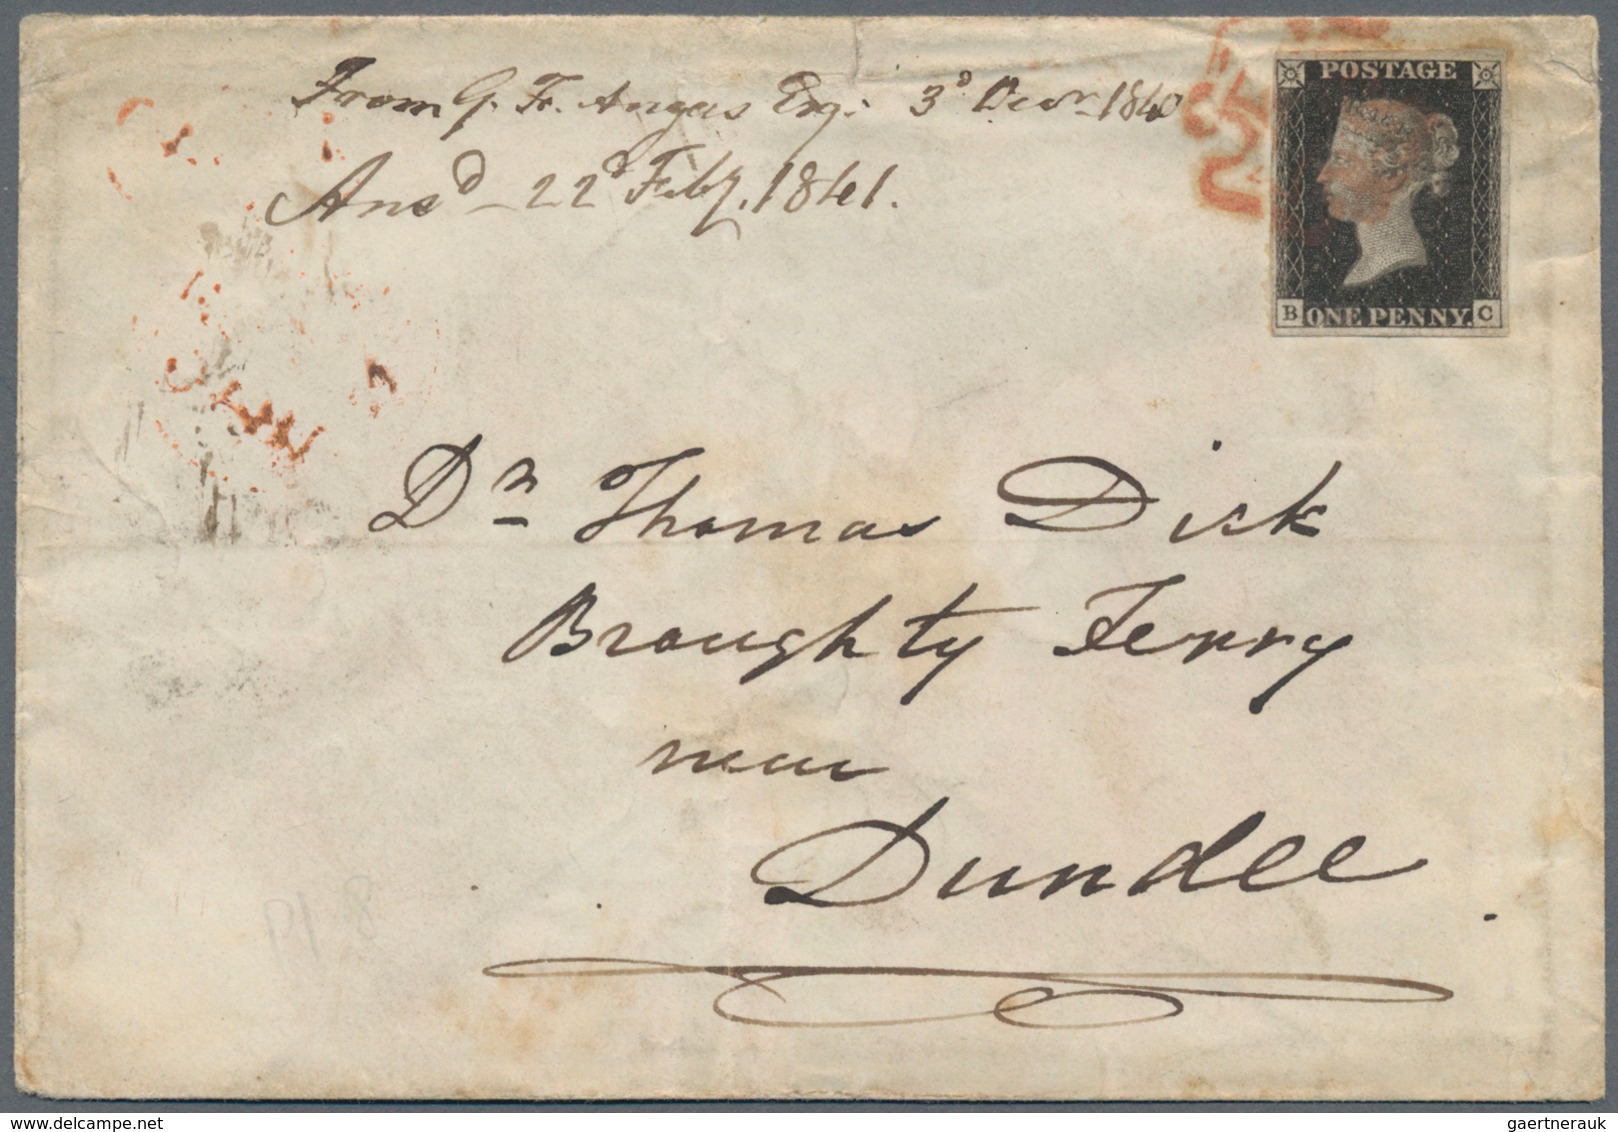 From G. Fr. Angas Esq: 3d Decr 1840
Ansd 22d Feby. 1841.
POSTAGE
B ONE PENNY. C
Dr Thomas Dick
Broughty Ferry
near
Dundee
Pl 8
gaertnerauk